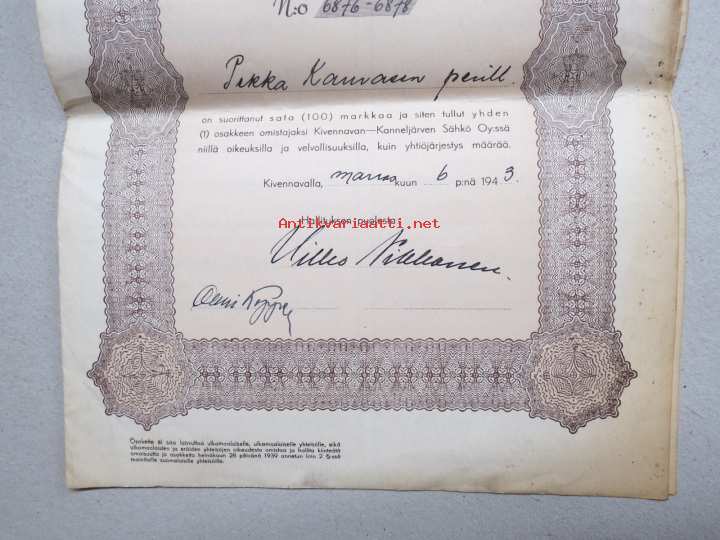 N:o 6876-6878
Pekka Kauvasen perill.
on suorittanut sata (100) markkaa ja siten tullut yhden
(1) osakkeen omistajaksi Kivennavan—Kanneljärven Sähkö Oy:ssä
niillä oikeuksilla ja velvollisuuksilla, kuin yhtiöjärjestys määrää.
Kivennavalla, marraskuun 6 p:nä 1943.
Hallituksen puolesta
Antikvariaatti.net
Vilho Pikkanen.
Osaketta ei saa luovuttaa ulkomaalaiselle, ulkomaalaiselle yhteisölle, eikä
ulkomaalaisten ja eräiden yhteisöjen oikeudesta omistaa ja hallita kiinteätä
omaisuutta ja osakkeita heinäkuun 28 päivänä 1939 annetun lain 2 §:ssä
mainitulle suomalaiselle yhteisölle.